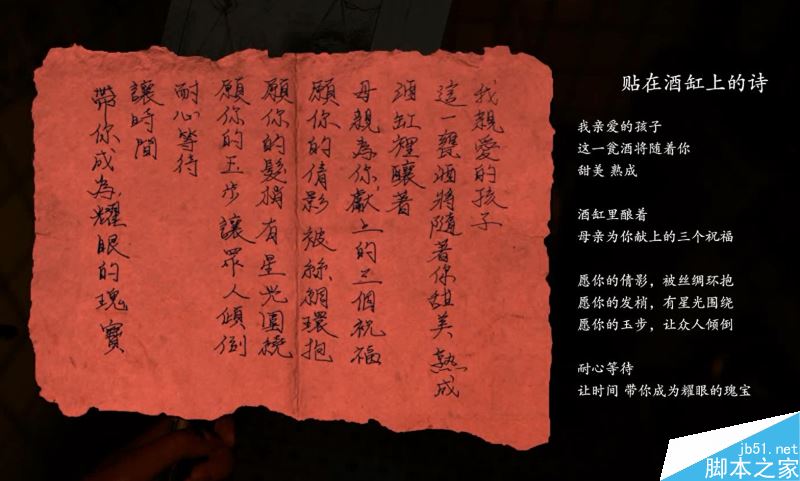 我親愛的孩子
這一甕酒將隨著你甜美 熟成
酒缸裡釀著
母親為你獻上的三個祝福
願你的倩影 被絲綢環抱
願你的髮梢 有星光圍繞
願你的玉步 讓眾人傾倒
耐心等待
讓時間
帶你成為耀眼的瑰寶
贴在酒缸上的诗
我亲爱的孩子
这一瓮酒将随着你
甜美 熟成
酒缸里酿着
母亲为你献上的三个祝福
愿你的倩影，被丝绸环抱
愿你的发梢，有星光围绕
愿你的玉步，让众人倾倒
耐心等待
让时间 带你成为耀眼的瑰宝
jb51.net
脚本之家